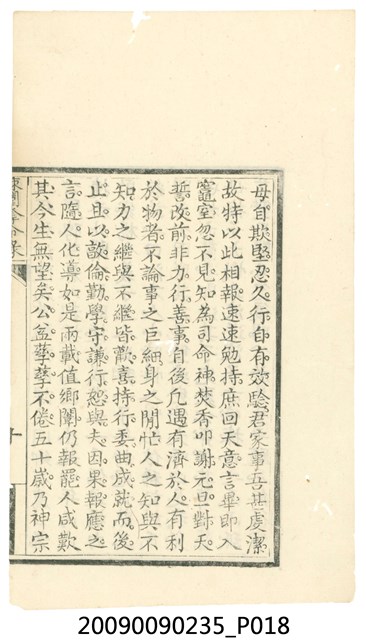 毋自欺堅忍久行自有效驗君家事吾甚虔潔
故特以此相報速速勉持庶回天意言畢即入
竈室忽不見知為司命神焚香叩謝元旦對天
誓改前非力行善事自後凡遇有濟於人有利
於物者不論事之巨細身之閒忙人之知與不
知力之繼與不繼皆歡喜持行委曲成就而後
止且以敦倫勤學守謙行恕與夫因果報應之
言隨人化導如是兩載值鄉闈仍報罷人咸歎
其今生無望矣公益孳孳不倦五十歲乃神宗
20090090235_P018